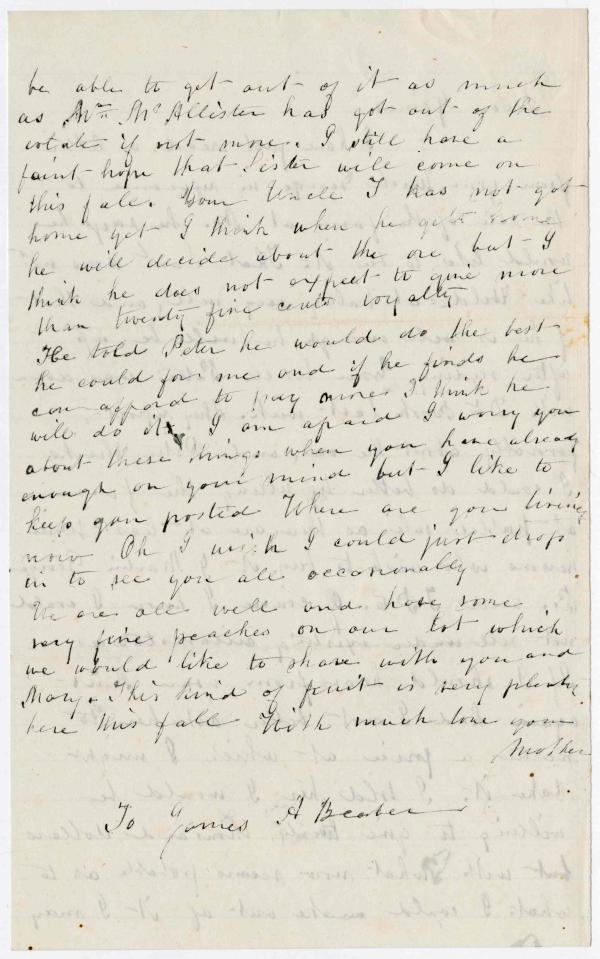 be able to get out of it as much
as Mrs McAllister has got out of the
estate if not more. I still have a
faint hope that Sister will come on
this fall. Your Uncle J has not got
home yet I think when he gets home
he will decide about the ore but I
think he does not expect to give more
than twenty five cents royalty
He told Peter he would do the best
he could for me and if he finds he
can afford to pay more I think he
will do it. I am afraid I worry you
about these things when you have already
enough on your mind but I like to
keep you posted Where are you living
now Oh I wish I could just drop
in to see you all occasionally
We are all well and have some
very fine peaches on our lot which
we would like to share with you and
Mary. This kind of fruit is very plenty
here this fall With much love your
Mother
To James A Beaver